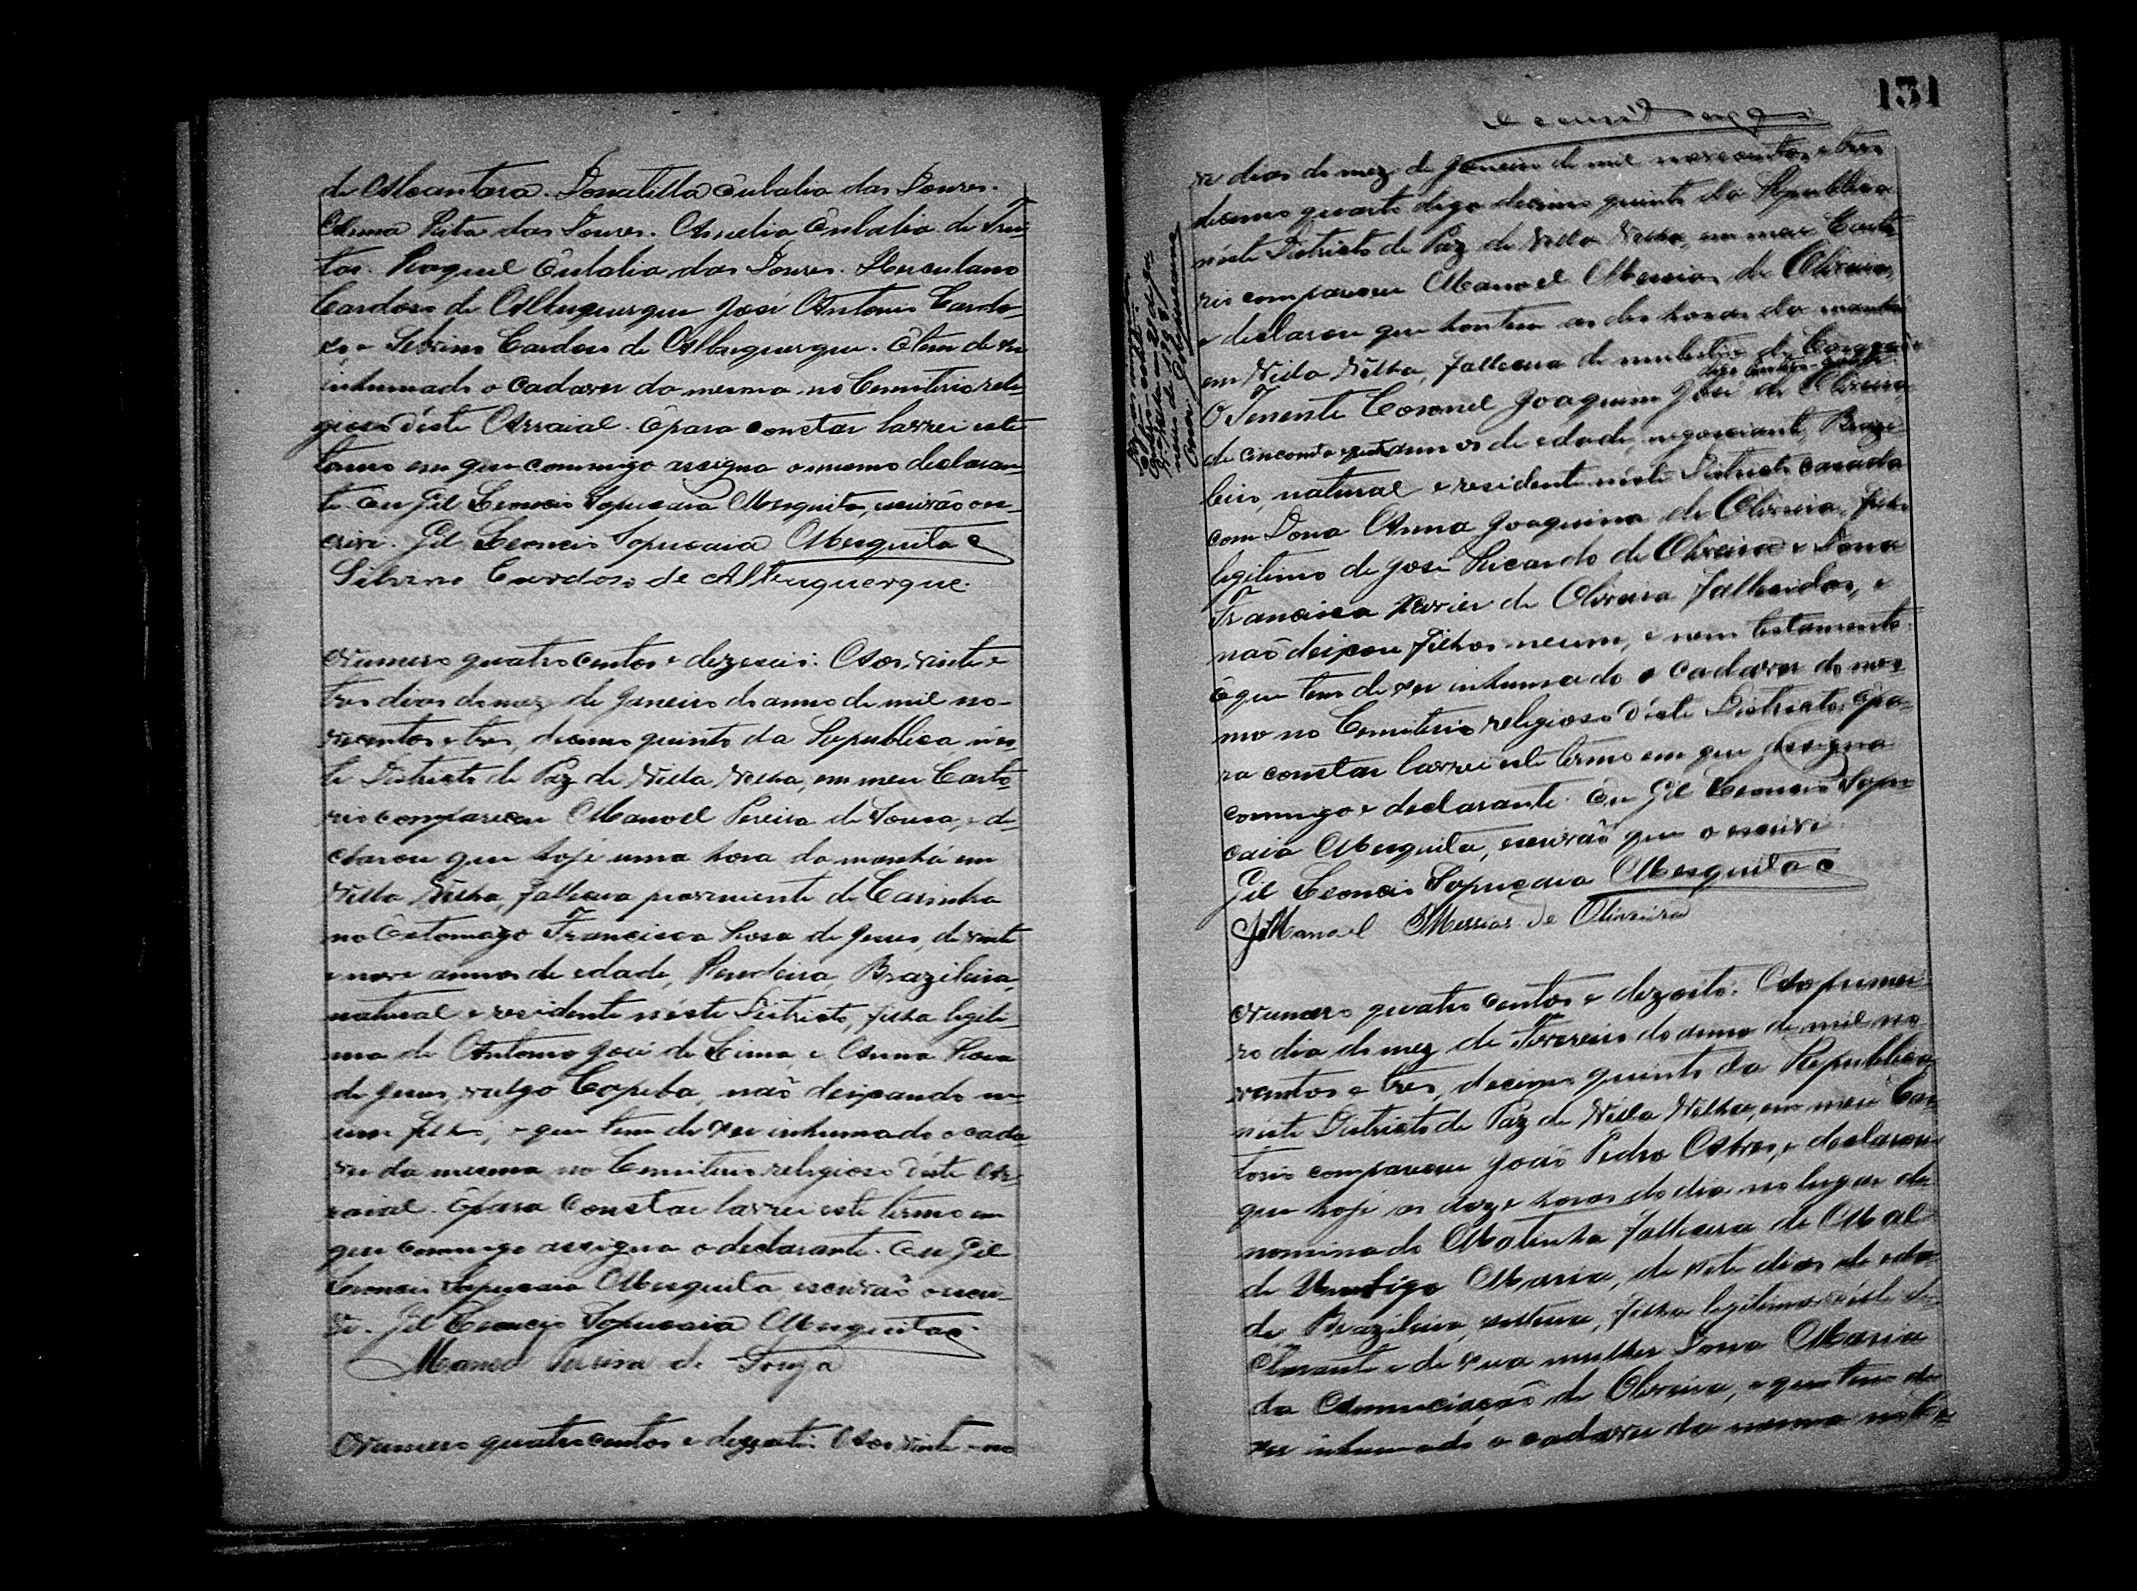 de Alcantara. Donatilla Eulalia das Dores.
Anna Rita das Dores. Amelia Eulalia de Frei-
tas. Raquel Eulalia das Dores. Herculano
Cardoso de Albuquerque José Antonio Cardo-
zo e Silvino Cardoso de Albuquerque. E tem de ser
inhumado o cadaver da mesma no Cemiterio reli-
gioso d'este Arraial. E para constar lavrei este
termo em que commigo assigna o mesmo declaran-
te. Eu Gil Leoncio Sapucaia Mesquita, escrivão o es-
crivi. Gil Leoncio Sapucaia Mesquita
Silvino Cardoso de Albuquerque.
Numero quatro centos e dezeseis. Aos vinte e
tres dias do mez de Janeiro do anno de mil no-
vecentos e tres, decimo quinto da Republica nes-
te Districto de Paz de Villa Velha, em meu Carto-
rio compareceu Manoel Pereira de Sousa, e de-
clarou que hoje uma hora da manhã em
Villa Velha, falleceu proveniente de
no Estomago Francisca Rosa de Jesus, de vinte
e nove annos de edade, Rendeira, Brazileira,
natural e residente n'este Districto, filha legiti-
ma de Antonio José de Lima, e Anna Rosa
de Jesus, vulgo Capeba, não deixando ne-
um filho, e que tem de ser inhumado o cada
ver da mesma no Cemiterio religioso d'este Ar-
raial. E para constar lavrei este termo em
que commigo assigna o declarante. Eu Gil
Leoncio Sapucaia Mesquita, escrivão o escri-
vi. Gil Leoncio Sapucaia Mesquita
Manoel Pereira de Souza
Numero quatro centos e dezesete. Aos vinte e no
131
ve dias do mez de Janeiro de mil novecentos e tres
decimo quarto digo decimo quinto da Republica
n'este Districto de Paz de Villa Velha, em meu Carto-
rio compareceu Manoel Messias de Oliveira,
e declarou que hontem as dez horas da manhã
em Villa Velha, falleceu de molestia de Coração
O Tenente Coronel Joaquim José de Oliveira,
de cincoenta e annos de edade, negociante, Brazi-
leiro, natural e residente n'este Districto casado
com Dona Anna Joaquina de Oliveira, filho
legitimo de José Ricardo de Oliveira e Dona
Francisca Xavier de Oliveira fallecidos, e
não deixou filhos neum, e nem testamento.
E que tem de ser inhumado o cadaver do mes-
mo no Cemiterio religioso d'este Districto. E pa-
ra constar lavrei este termo em que assigna
commigo o declarante. Eu Gil Leoncio Sapu-
caia Mesquita, escrivão que o escrivi.
Gil Leoncio Sapucaia Mesquita
Manoel Messias de Oliveira
Numero quatro centos e dezoito. Ao primei-
ro dia do mez de Fevereiro do anno de mil no-
vecentos e tres, decimo quinto da Republica,
n'este Districto de Paz de Villa Velha, em meu Car-
torio compareceu João Pedro Alves, e declarou
que hoje as doze horas do dia no lugar de-
nominado Matinha falleceu de Mal
de Umbigo Maria, de sete dias de eda-
de, Brazileira, solteira, filha legitima d'este de-
clarante e de sua mulher Dona Maria
da Annunciação de Oliveira, e que tem de
ser inhumado o cadaver da mesma no Ce-